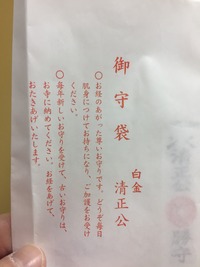 御守袋
白金
清正公
○お経のあがった尊いお守りです。どうぞ毎日
肌身につけてお持ちになり、ご加護をお受け
ください。
○毎年新しいお守りを受けて、古いお守りは、
お寺に納めてください。お経をあげて、
おたきあげいたします。